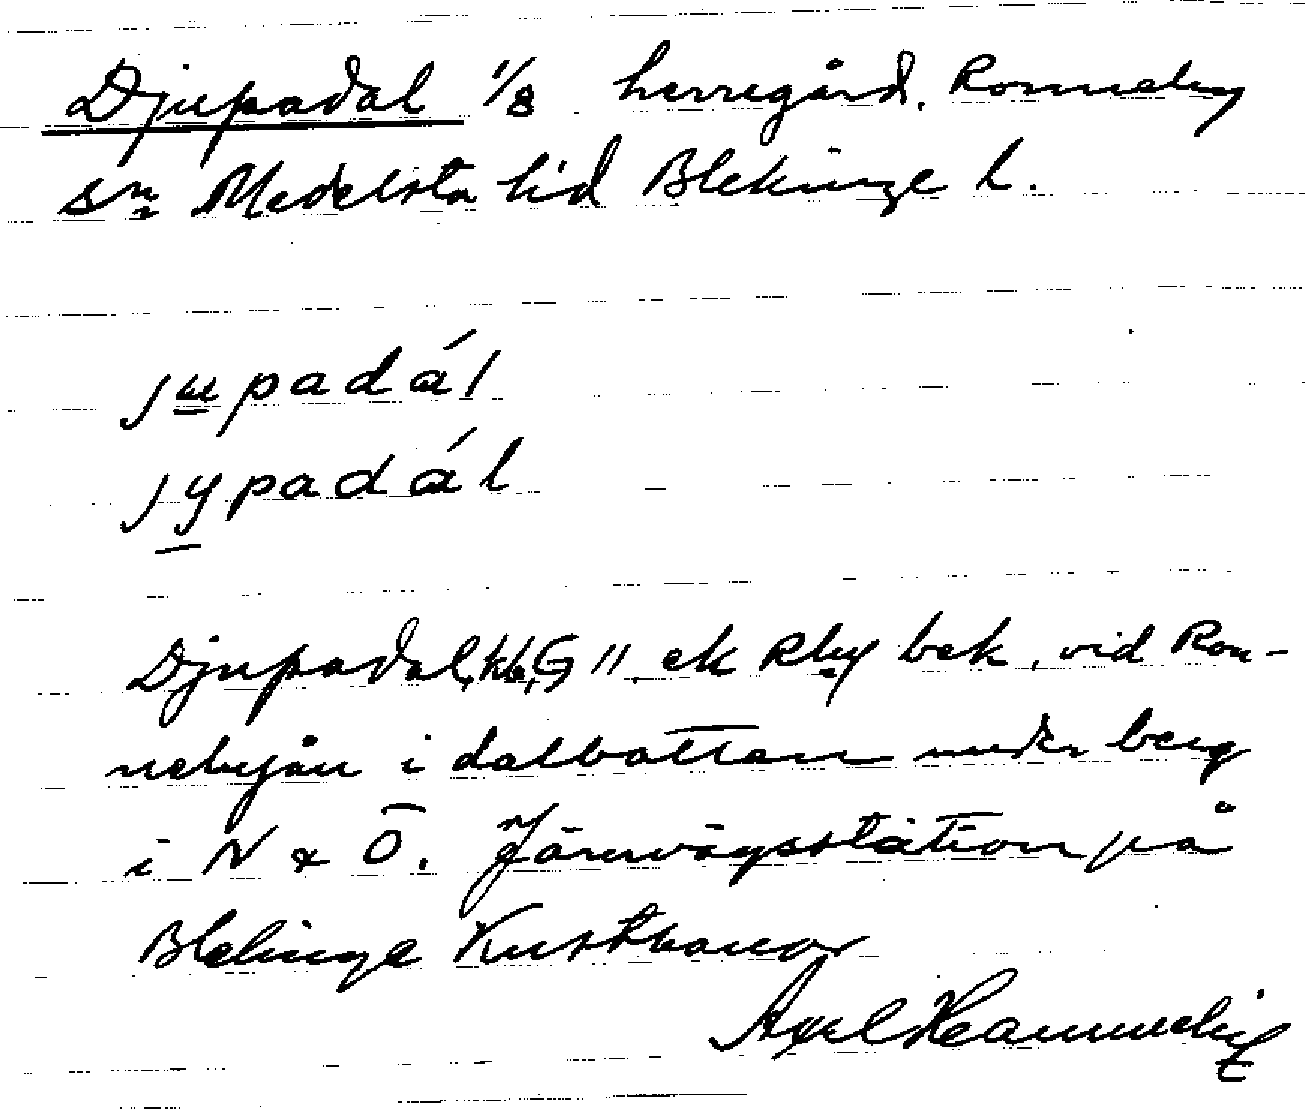 Djupadal 1/8 herregård. Ronneby
sn Medelsta hd Blekinge l.
jupadál
jypadál
Djupadal, kb, G 11 ek Rby bek, vid Ron-
nebyån i dalbotten under berg
i N & Ö. Järnvägsstation på
Blekinge Kustbanor
Axel